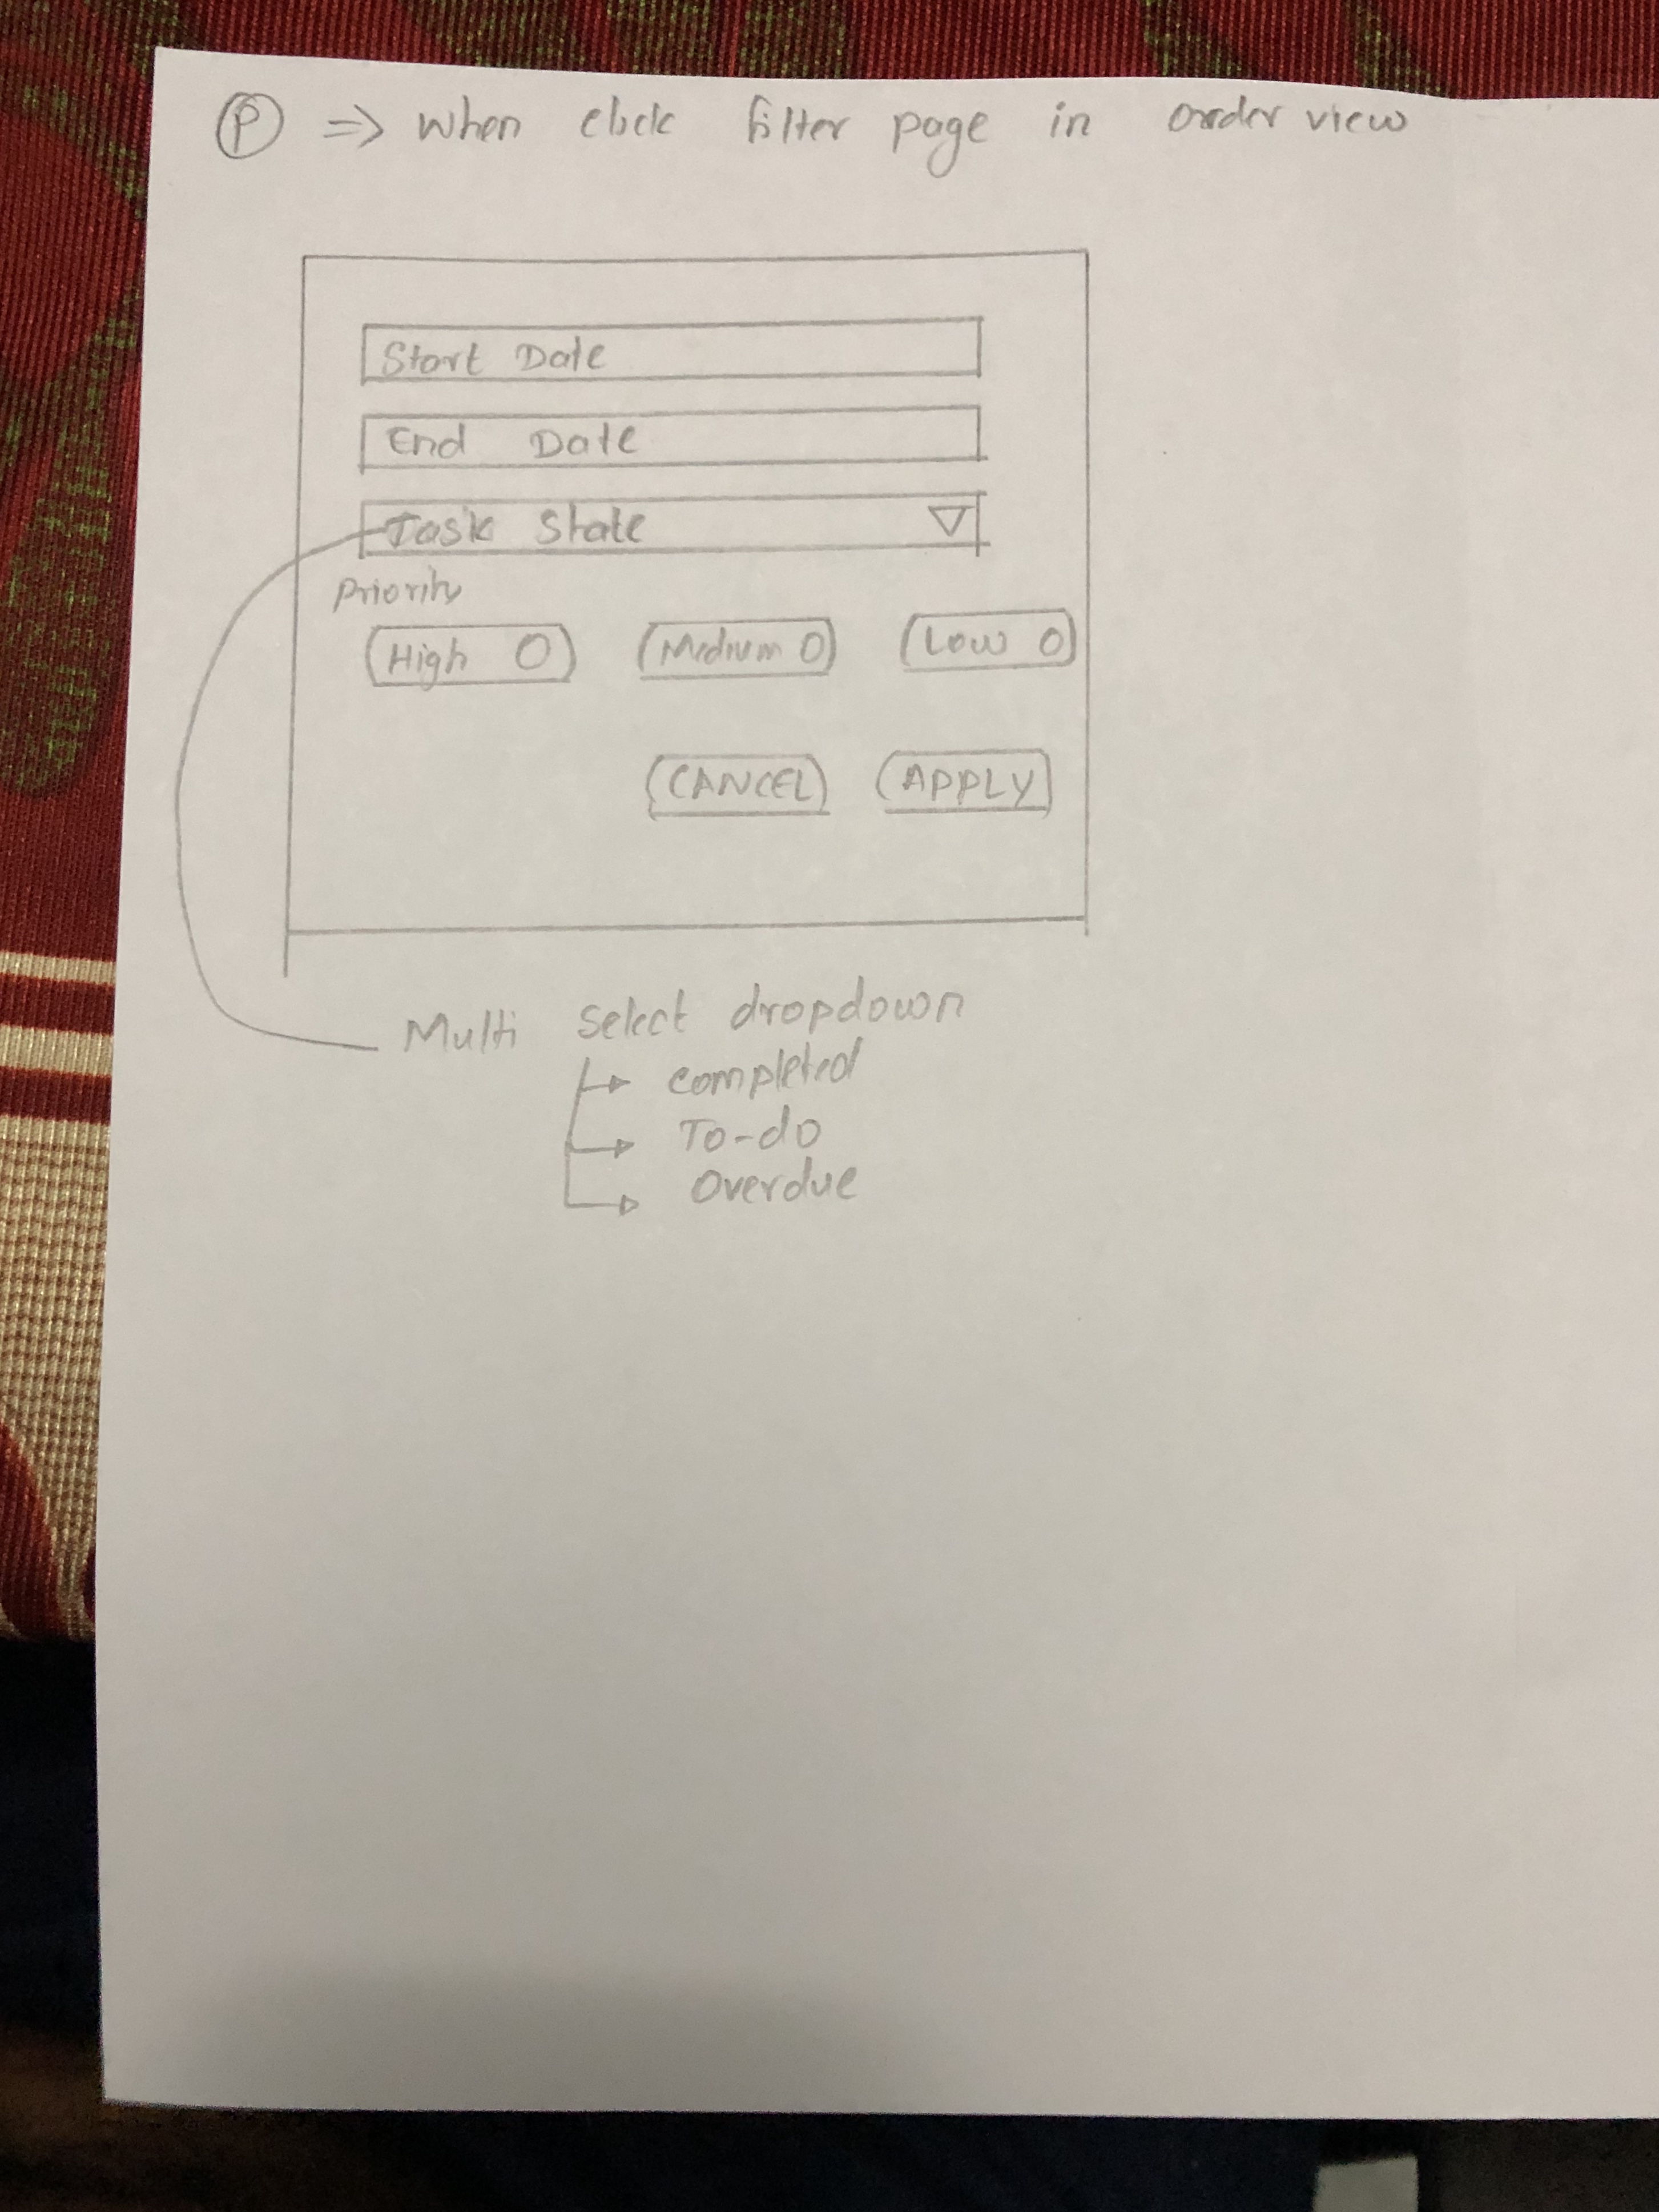 P ⇒ When click filter page in order view
Start Date
End Date
Task State
Priority
High O Medium O Low O
CANCEL APPLY
Multi select dropdown
→ completed
→ To-do
→ Overdue